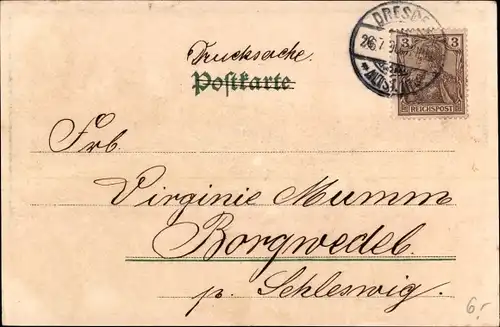 Drucksache.
Postkarte.
DRESDEN
3 3
REICHSPOST
Frb.
Virginie Mumm
Borgwedel
p. Schleswig.
6.-